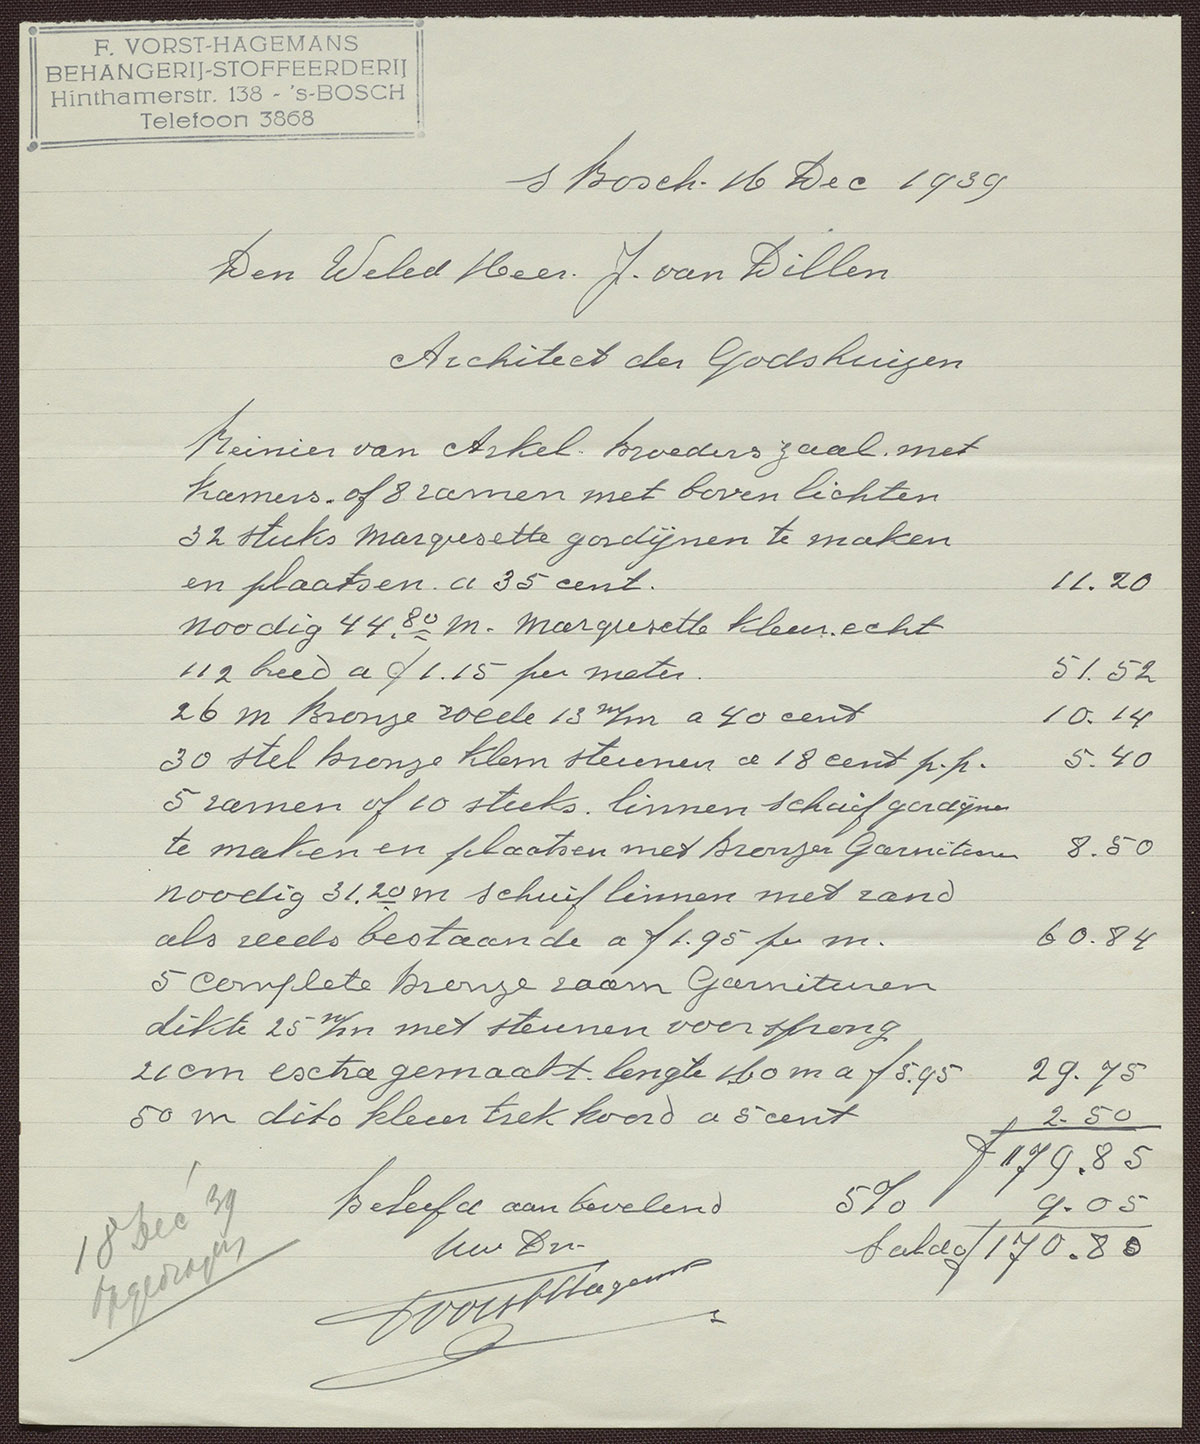 F. VORST-HAGEMANS
BEHANGERIJ-STOFFEERDERIJ
Hinthamerstr. 138 - 's-BOSCH
Telefoon 3868
s Bosch. 16 Dec 1939
Den Weled Heer. J. van Dillen
Architect der Godshuizen
Reinier van Arkel. Broeders zaal. met
Kamers. of 8 ramen met boven lichten
32 stuks Marquesette gordijnen te maken
en plaatsen. a 35 cent. 11.20
noodig 44.80 m. Marquesette kleur.echt
112 breed a f 1.15 per meter. 51.52
26 m Bronze roede 13 m/m a 40 cent 10.14
30 stel bronze klem steunen a 18 cent p.p. 5.40
5 ramen of 10 stuks. linnen schuif gordijnen
te maken en plaatsen met bronzen Garnituren 8.50
noodig 31.20 m schuif linnen met rand
als reeds bestaande a f 1.95 per m. 60.84
5 Complete bronze raam Garnituren
dikte 25 m/m met steunen voorsprong
21 cm esctra gemaakt. lengte 1.60 m a f 5.95 29.75
50 m dito kleur trek koord a 5 cent 2.50
f 179.85
Beleefd aanbevelend 5% 9.05
Uw Dr. Saldo f 170.80
F Vorst Hagemans
18 Dec '39
opgedragen